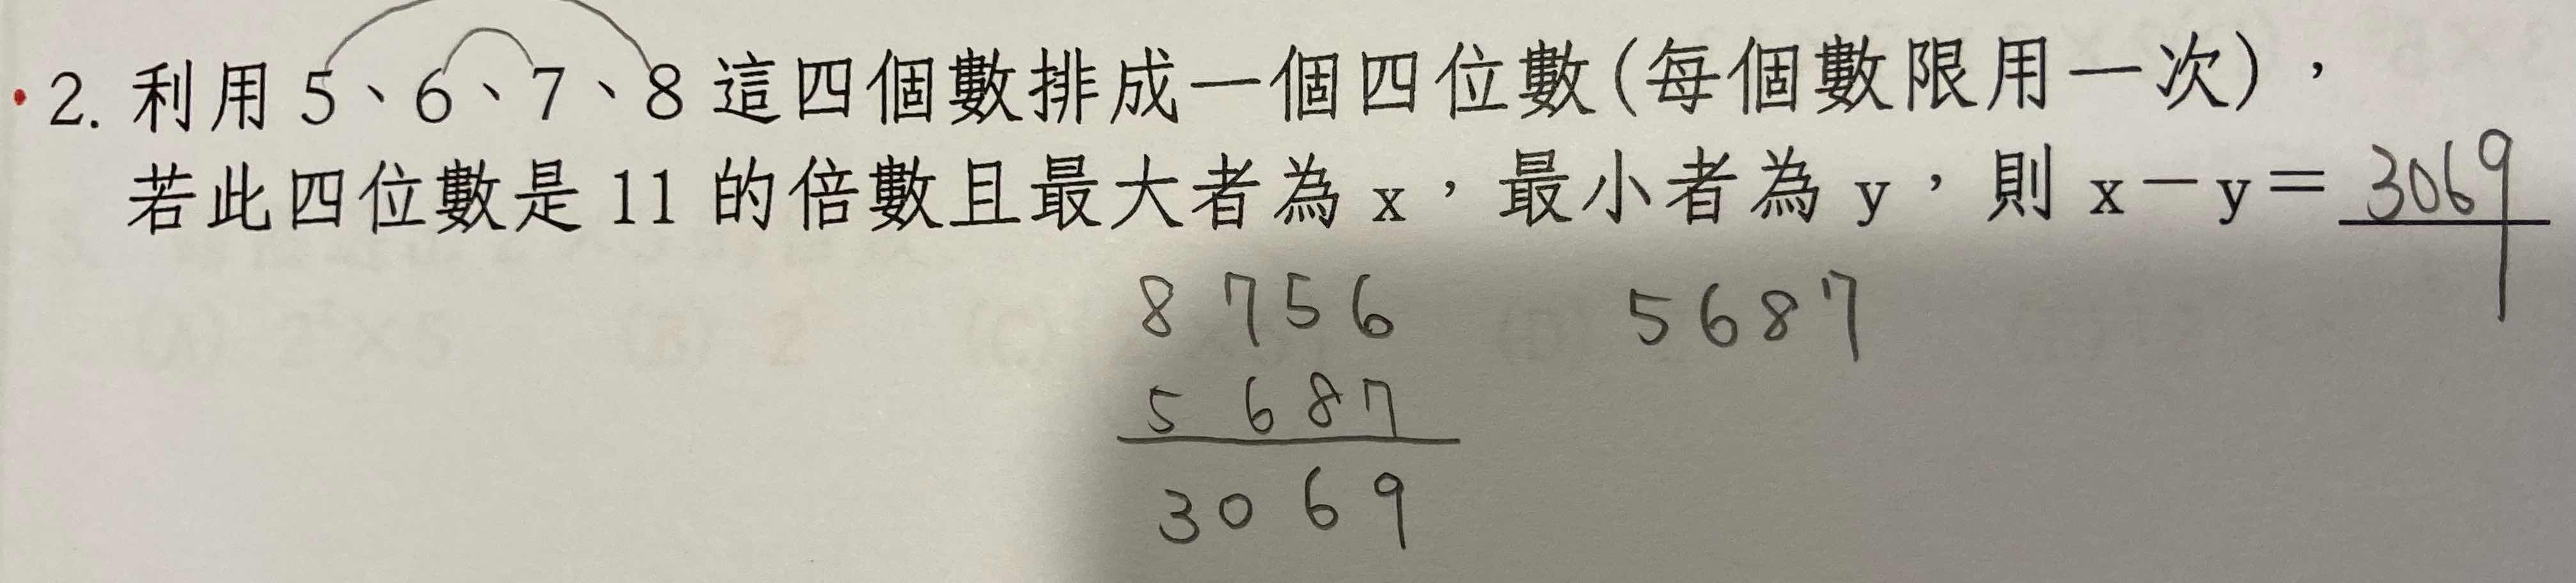 2. 利用 5、6、7、8 這四個數排成一個四位數(每個數限用一次)，
若此四位數是 11 的倍數且最大者為 x，最小者為 y，則 x－y＝3069
8 7 5 6 5 6 8 7
5 6 8 7
3 0 6 9